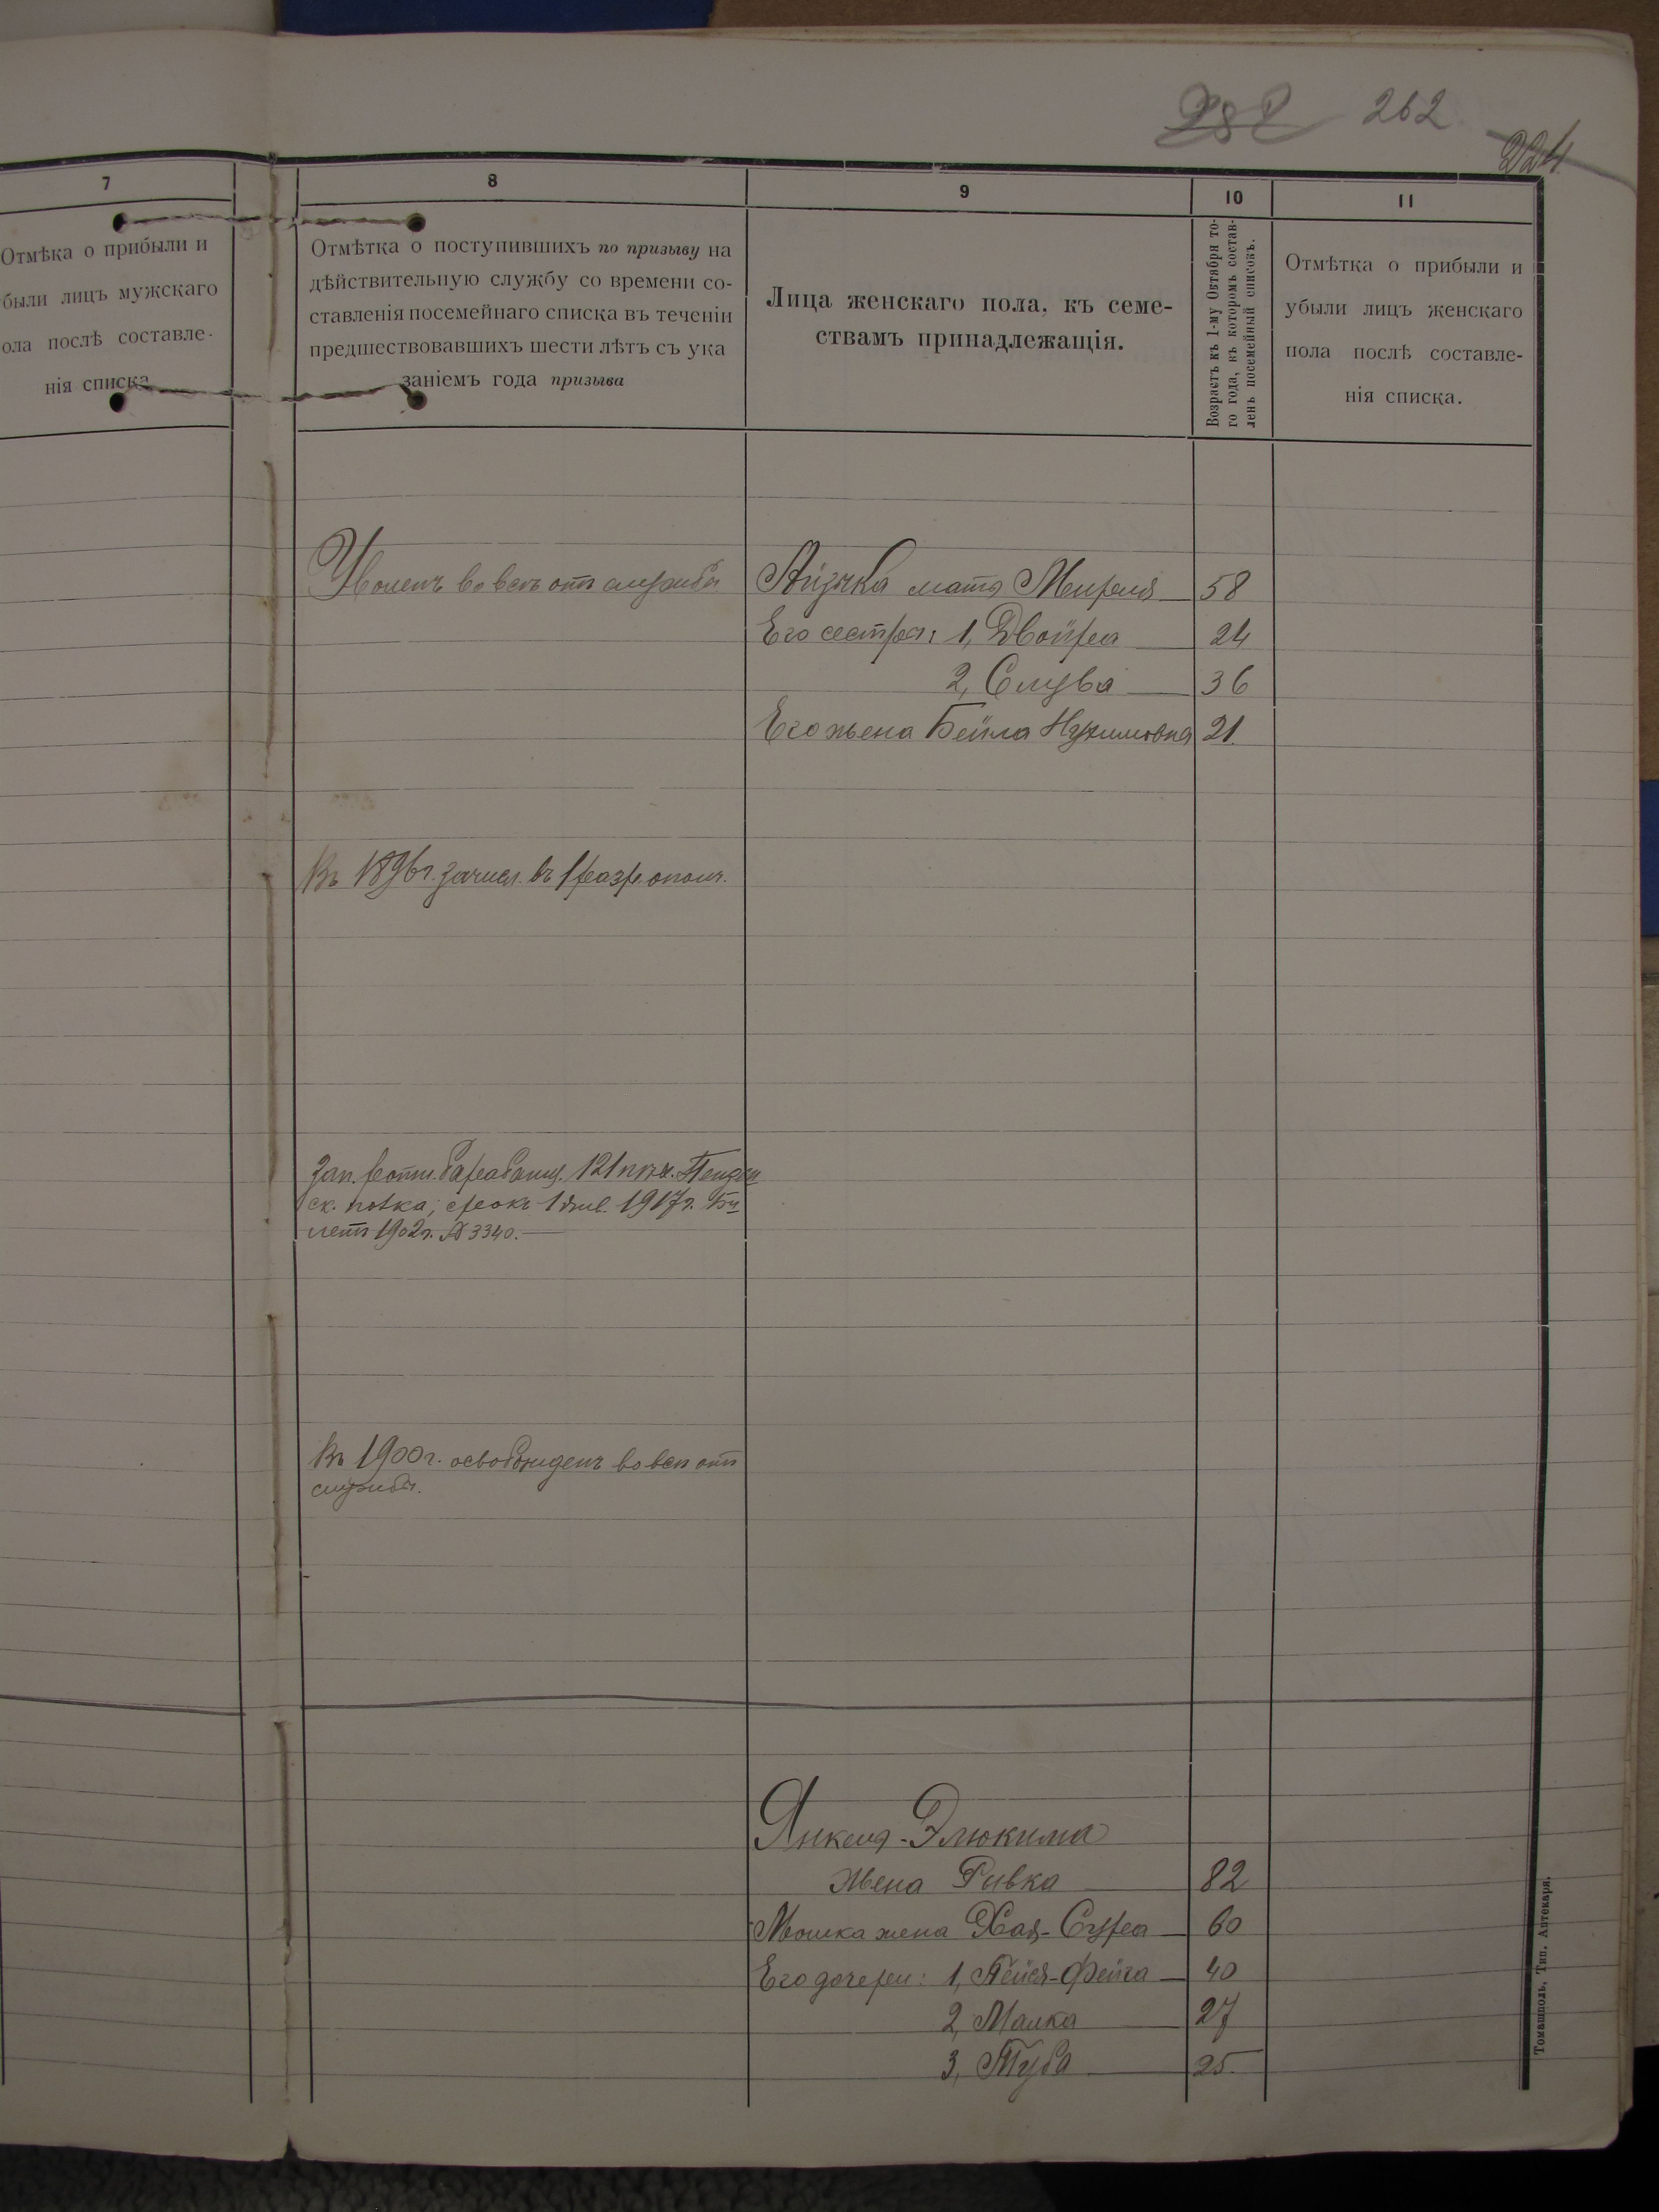 262
224
7
8
9
10
11
Отмѣка о прибыли и
были лицъ мужскаго
ола послѣ составле-
нія списка
Отмѣтка о поступившихъ по призыву на
дѣйствительную службу со времени со-
ставленія посемейнаго списка въ теченіи
предшествовавшихъ шести лѣтъ съ ука
заніемъ года призыва
Лица женскаго пола, къ семе-
ствамъ принадлежащія.
Возрастъ къ 1-му Октября то-
го года, къ которомъ состав-
ленъ посемейный списокъ.
Отмѣтка о прибыли и
убыли лицъ женскаго
пола послѣ составле-
нія списка.
Уволенъ вовсе отъ службы
Айзика мать Миреля 58
Его сестра: 1, Двойра 24
2, Слува 36
Его жена Бейла Нухимовна 21
Въ 1896г. зачисл. въ 1 разр. ополч.
Зап. барабанщ. 121 пѣх. Пензен
ск. полка; срокъ 1 Янв. 1917г. Би
летъ 1902г. № 3340.
Въ 1900г. освобожденъ вовсе отъ
службы.
Янкеля-Элюкима
жена Ривка 82
Мошка жена Хая-Сура 60
Его дочери: 1, Пейся-Фейга 40
2, Малка 27
3, Туба 25.
Томашполь, Тип. Аптекаря.